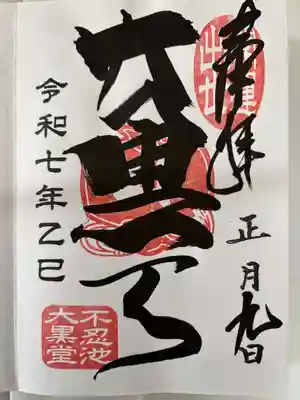 奉拝
開運
出世
正月九日
大黒天
令和七年乙巳
不忍池
大黒堂